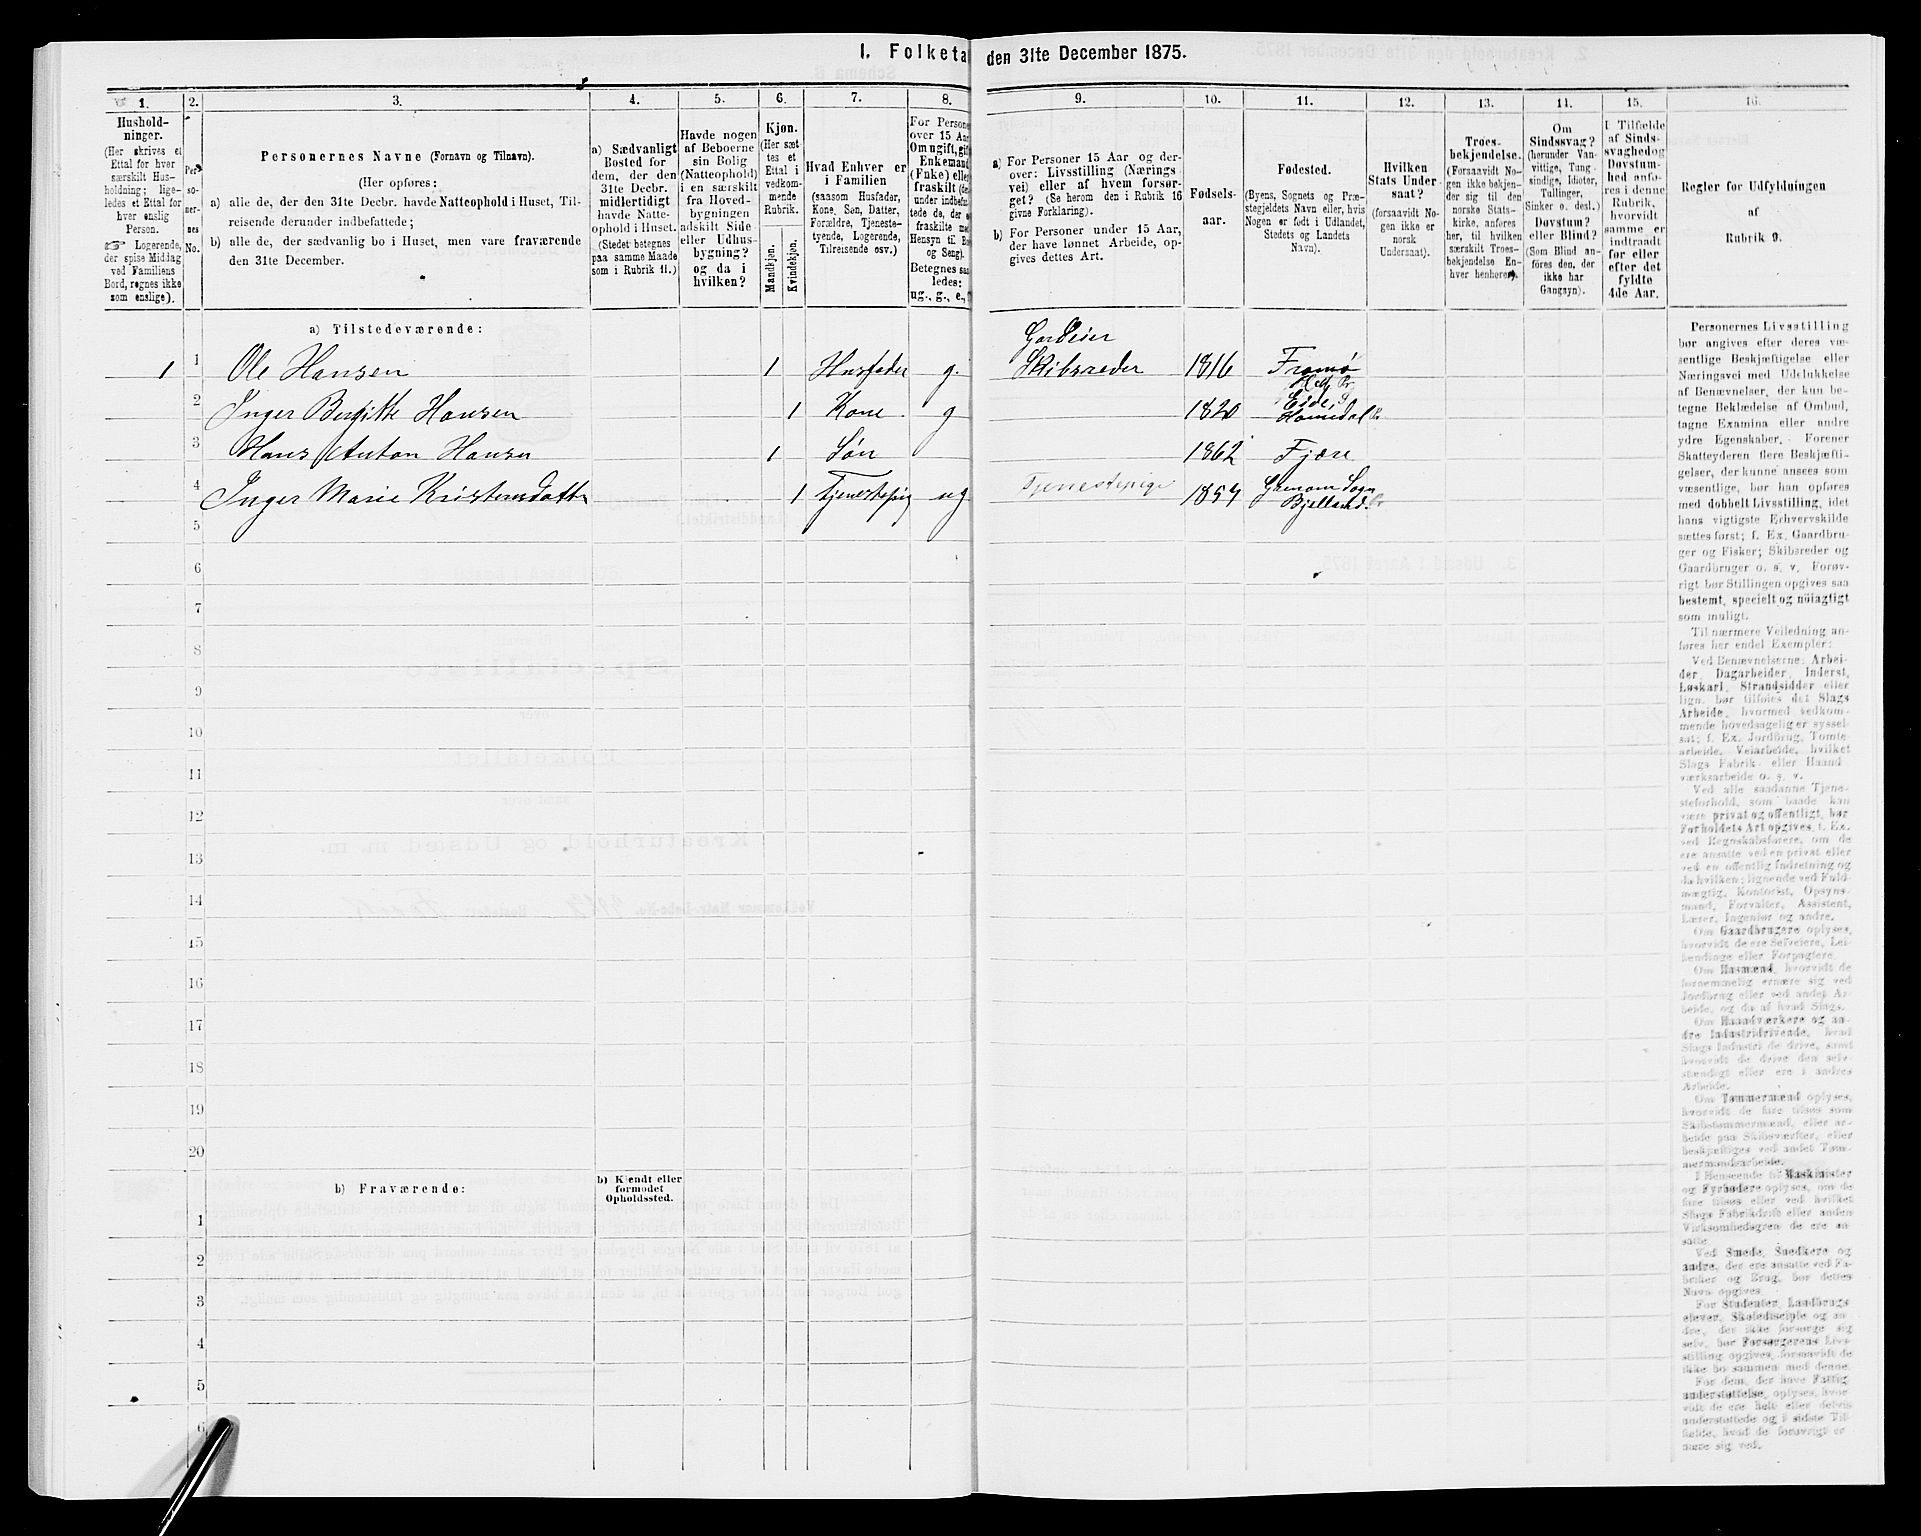 I. Folketa den 31te December 1875.
1. 2. 3. 4. 5. 6. 7. 8. 9. 10. 11. 12. 13. 14. 15. 16.
Hushold-
ninger.
(Her skrives et
Ettal for hver
særskilt Hus-
holdning; lige-
ledes et Ettal for
hver enslig
Person.
☞ Logerende,
der spise Middag
ved Familiens
Bord, regnes ikke
som enslige).
Per-
so-
ner-
nes
No.
Personernes Navne (Fornavn og Tilnavn).
(Her opføres:
a) alle de, der den 31te Decbr. havde Natteophold i Huset, Til-
reisende derunder indbefattede;
b) alle de, der sædvanlig bo i Huset, men vare fraværende
den 31te December.
a) Sædvanligt
Bosted for
dem, der den
31te Decbr.
midlertidigt
havde Natte-
ophold i Huset.
(Stedet betegnes
paa samme Maade
som i Rubrik 11.)
Havde nogen
af Beboerne
sin Bolig
(Natteophold)
i en særskilt
fra Hoved-
bygningen
adskilt Side-
eller Udhus-
bygning?
og da i
hvilken?
Kjøn.
(Her sæt-
tes et
Ettal i
vedkom-
mende
Rubrik.
Mandkjøn.
Kvindekjøn.
Hvad Enhver er
i Familien
(saasom Husfader,
Kone, Søn, Datter,
Forældre, Tjeneste-
tyende, Logerende,
Tilreisende osv.)
For Persone
over 15 Aar
Om ugift, gift
Enkemand
(Enke) elle
fraskilt (de
under indbefat-
tede de, der e
fraskilte me
Hensyn til Bo
og Seng).
Betegnes saa
ledes:
ug., g., e., f
a) For Personer 15 Aar og der-
over: Livsstilling (Nærings
vei) eller af hvem forsør-
get? (Se herom den i Rubrik 16
givne Forklaring).
b) For Personer under 15 Aar,
der have lønnet Arbeide, op-
gives dettes Art.
Fødsels-
aar.
Fødested.
(Byens, Sognets og Præ-
stegjeldets Navn eller, hvis
Nogen er født i Udlandet,
Stedets og Landets
Navn).
Hvilken
Stats Under-
saat?
(forsaavidt No-
gen ikke er
norsk
Undersaat).
Troes-
bekjendelse.
(Forsaavidt No-
gen ikke bekjen-
der sig til den
norske Stats-
kirke, anføres
her, til hvilken
særskilt Troes-
bekjendelse En-
hver henhører).
Om
Sindssvag?
(herunder Van-
vittige, Tung-
sindige, Idioter,
Tullinger,
Sinker o. desl.)
Døvstum?
eller Blind?
(Som Blind an-
føres den, der
ikke har
Gangsyn).
I Tilfælde
af Sinds-
svaghed og
Døvstum-
hed anfø-
res i denne
Rubrik,
hvorvidt
samme er
indtraadt
før eller
efter det
fyldte
4de Aar.
Regler for Udfyldningen
af
Rubrik 9.
a) Tilstedeværende:
Gardeier
1 1 Ole Hansen 1 Husfader g. Skibsreder 1816 Fromø
2 Inger Birgitte Hansen 1 Kone g 1820 Eide, Homedal Pr
3 Hans Anton Hansen 1 Søn 1862 Fjære
4 Inger Marie Kristensdatte 1 Tjenestepig ug Tjenestepige 1857 Sogn
Bjelland Pr
5
6
7
8
9
10
11
12
13
14
15
16
17
18
19
20
b) Fraværende:
b) Kjendt eller
formodet
Opholdssted.
1
2
3
4
5
6
Personernes Livsstilling
bør angives efter deres væ-
sentlige Beskjæftigelse eller
Næringsvei med Udelukkelse
af Benævnelser, der kun be-
tegne Beklædelse af Ombud,
tagne Examina eller andre
ydre Egenskaber. Forener
Skatteyderen flere Beskjæfti-
gelser, der kunne ansees som
væsentlige, bør han opføres
med dobbelt Livsstilling, idet
hans vigtigste Erhvervskilde
sættes først; f. Ex. Gaardbru-
ger og Fisker; Skibsreder og
Gaardbruger o. s. v. Forøv-
rigt bør Stillingen opgives saa
bestemt, specielt og nöiagtigt
som muligt.
Til nærmere Veiledning an-
føres her endel Exempler:
Ved Benævnelserne: Arbei-
der, Dagarbeider, Inderst,
Løskarl, Strandsidder eller
lign. bør tilføies det Slags
Arbeide, hvormed vedkom-
mende hovedsagelig er syssel-
sat; f. Ex. Jordbrug, Tomte-
arbeide, Veiarbeide, hvilket
Slags Fabrik- eller Haand-
værksarbeide o. s. v.
Ved alle saadanne Tjene-
steforhold, som baade kan
være privat og offentligt, bør
Forholdets Art opgives, f. Ex.
ved Regnskabsførere, om de
ere ansatte ved en privat eller
ved en offentlig Indretning og
da hvilken; lignende ved Fuld-
mægtig, Kontorist, Opsyns-
mand, Forvalter, Assistent,
Lærer, Ingeniør og andre.
Om Gaardbrugere oplyses,
hvorvidt de ere Selveiere, Lei-
lendinge eller Forpagtere.
Om Husmænd, hvorvidt de
fornemmelig ernære sig ved
Jordbrug eller ved andet Ar-
beide, og da af hvad Slags.
Om Haandværkere og an-
dre Industridrivende, hvad
Slags Industri de drive, samt
hvorvidt de drive den selv-
stændigt eller ere i andres
Arbeide.
Om Tømmermænd oplyses,
hvorvidt de fare tilsøs som
Skibstømmermænd, eller ar-
beide paa Skibsværfter, eller
beskjæftiges ved andet Tøm-
mermandsarbeide.
I Henseende til Maskinister
og Fyrbødere oplyses, om de
fare tilsøs eller ved hvilket
Slags Fabrikdrift eller anden
Virksomhedsgren de ere an-
satte.
Ved Smede, Snedkere og
andre, der ere ansatte ved Fa-
briker og Brug, bør dettes
Navn opgives.
For Studenter, Landbrugs-
elever, Skoledisciple og an-
dre, der ikke forsørge sig
selv, bør Forsørgerens Livs-
stilling opgives, forsaavidt de
ikke bo sammen med denne.
For dem, der have Fattig-
understøttelse, oplyses, hvor-
vidt de ere helt eller delvis
understøttede og i sidste Til-
fælde, hvad de forøvrigt er-
nære sig ved.